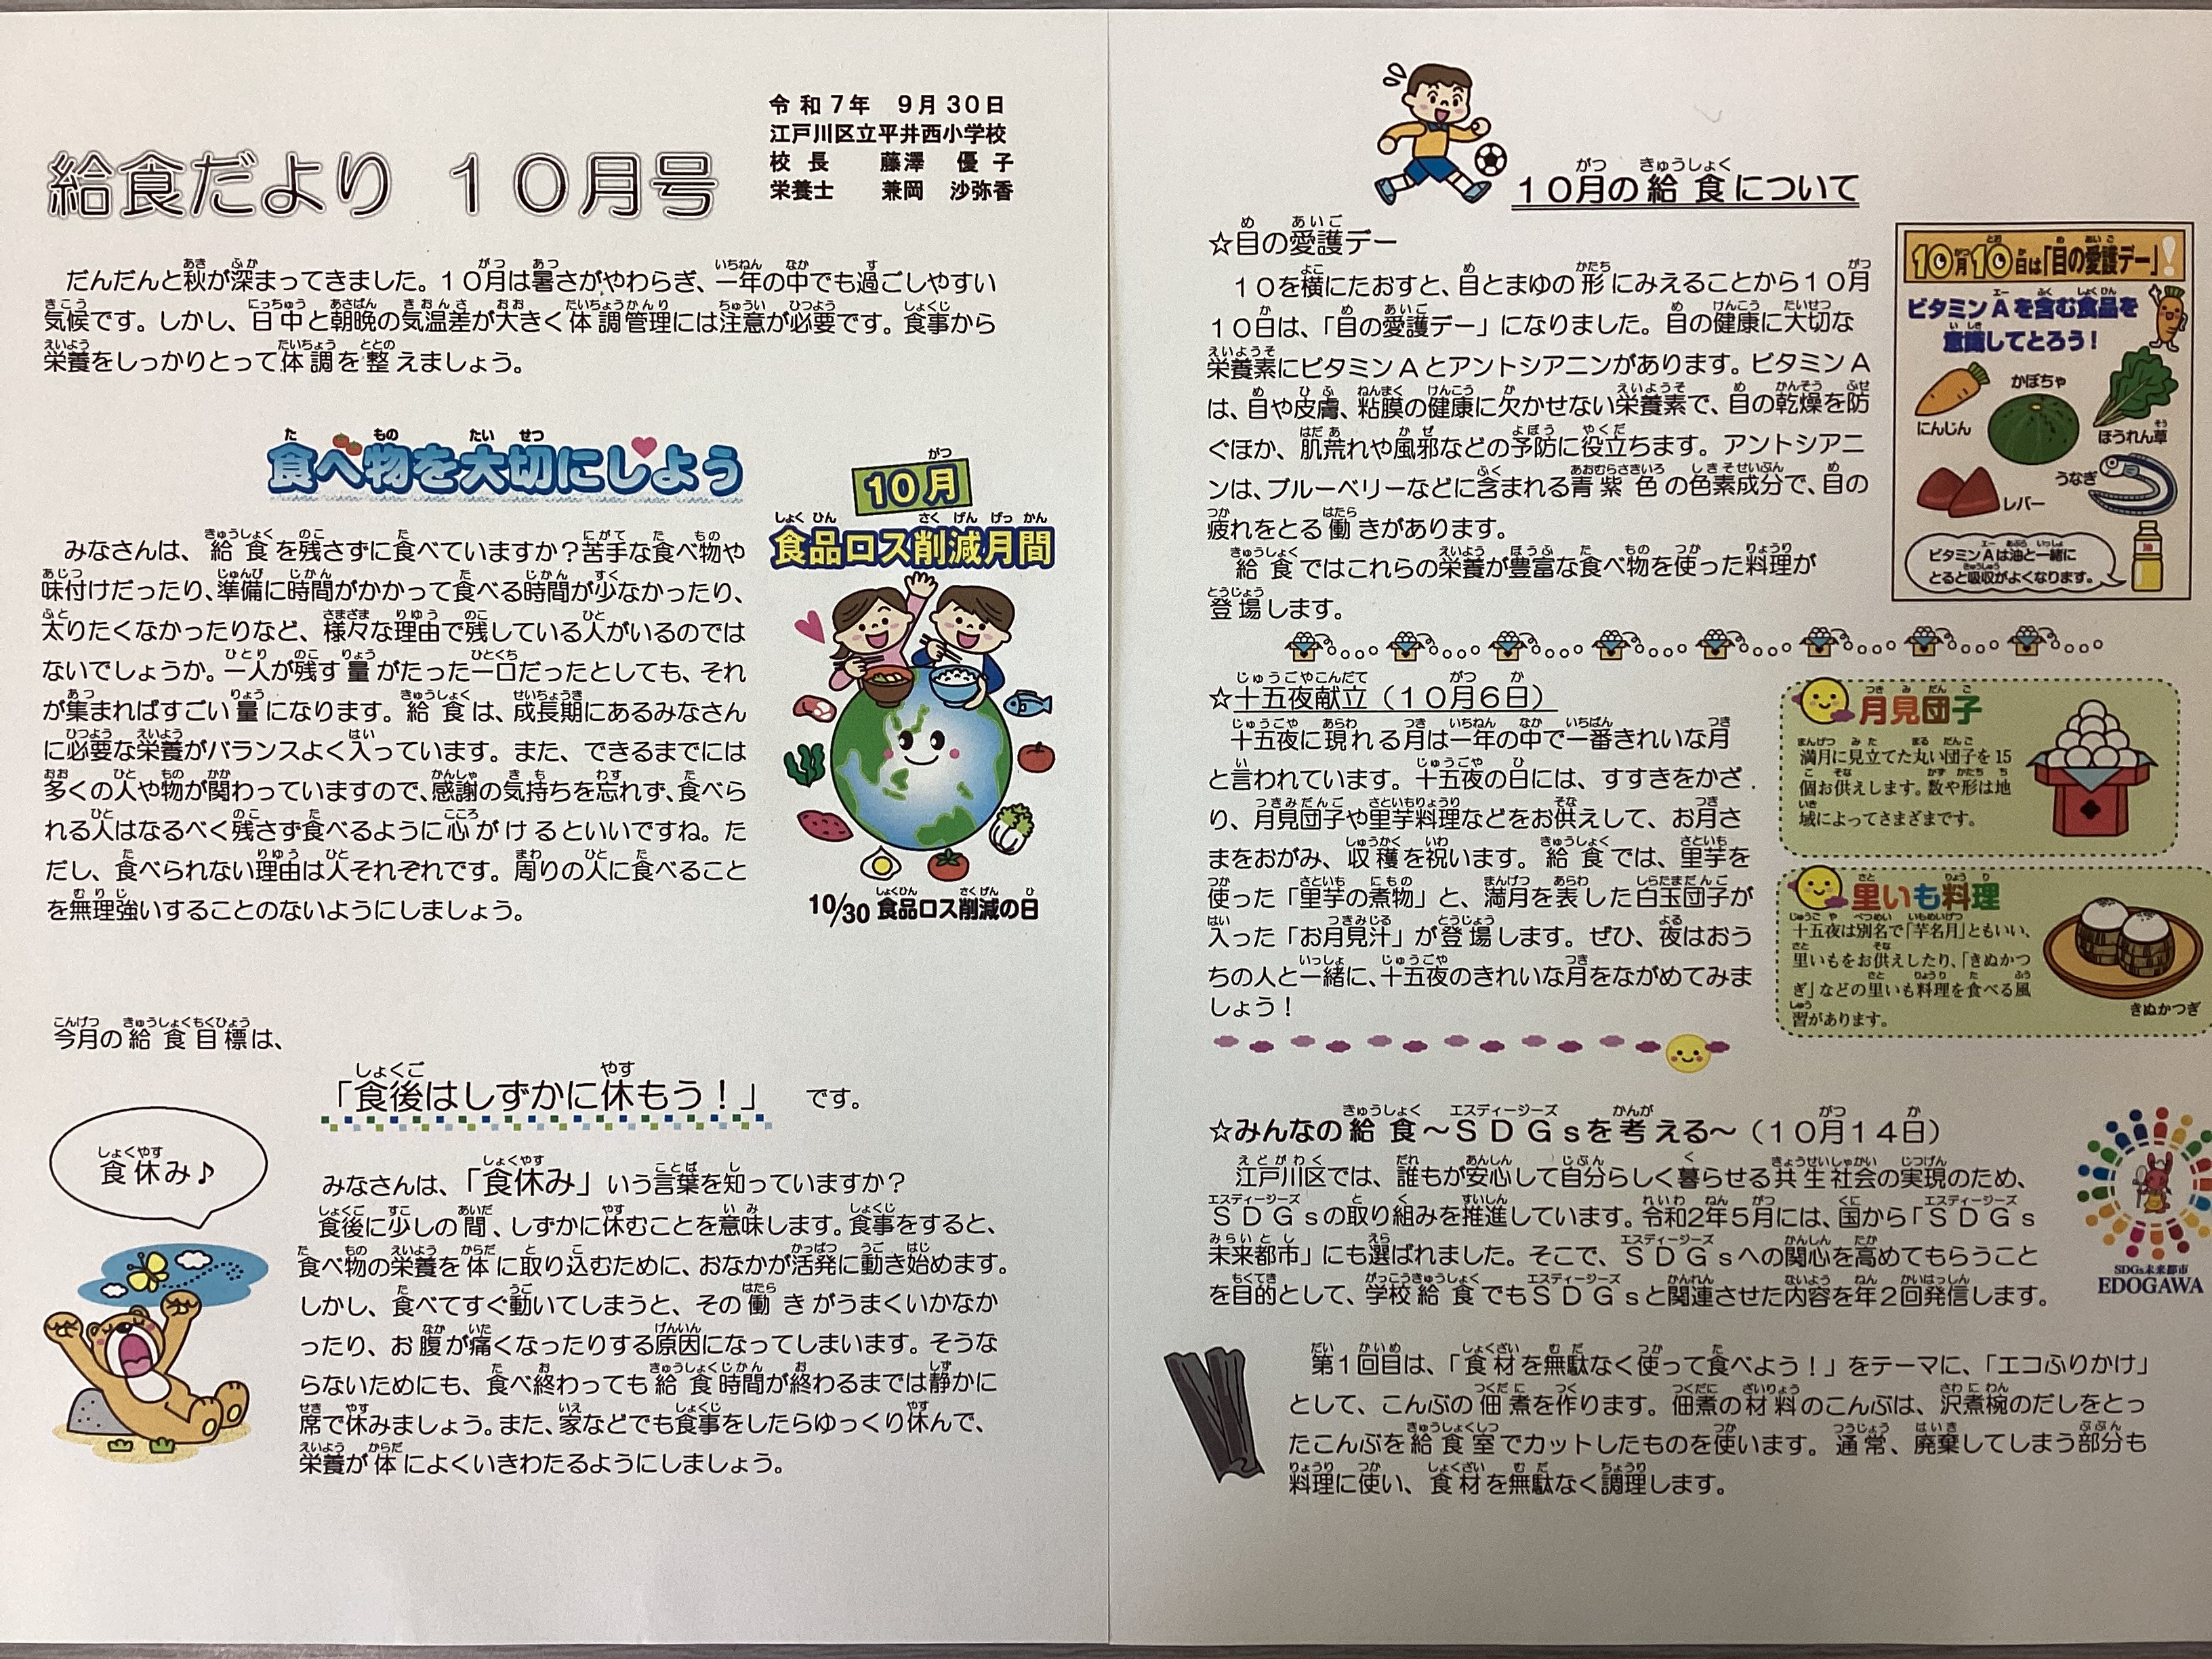 令和7年 9月30日
江戸川区立平井西小学校
校長 藤澤 優子
栄養士 兼岡 沙弥香
給食だより 10月号
だんだんと秋が深まってきました。10月は暑さがやわらぎ、一年の中でも過ごしやすい
気候です。しかし、日中と朝晩の気温差が大きく体調管理には注意が必要です。食事から
栄養をしっかりとって体調を整えましょう。
食べ物を大切にしよう
みなさんは、給食を残さずに食べていますか？苦手な食べ物や
味付けだったり、準備に時間がかかって食べる時間が少なかったり、
太りたくなかったりなど、様々な理由で残している人がいるのでは
ないでしょうか。一人が残す量がたった一口だったとしても、それ
が集まればすごい量になります。給食は、成長期にあるみなさん
に必要な栄養がバランスよく入っています。また、できるまでには
多くの人や物が関わっていますので、感謝の気持ちを忘れず、食べら
れる人はなるべく残さず食べるように心がけるといいですね。た
だし、食べられない理由は人それぞれです。周りの人に食べること
を無理強いすることのないようにしましょう。
10月
食品ロス削減月間
10/30 食品ロス削減の日
今月の給食目標は、
「食後はしずかに休もう！」 です。
食休み♪
みなさんは、「食休み」いう言葉を知っていますか？
食後に少しの間、しずかに休むことを意味します。食事をすると、
食べ物の栄養を体に取り込むために、おなかが活発に動き始めます。
しかし、食べてすぐ動いてしまうと、その働きがうまくいかなか
ったり、お腹が痛くなったりする原因になってしまいます。そうな
らないためにも、食べ終わっても給食時間が終わるまでは静かに
席で休みましょう。また、家などでも食事をしたらゆっくり休んで、
栄養が体によくいきわたるようにしましょう。
10月の給食について
☆目の愛護デー
10を横にたおすと、目とまゆの形にみえることから10月
10日は、「目の愛護デー」になりました。目の健康に大切な
栄養素にビタミンAとアントシアニンがあります。ビタミンA
は、目や皮膚、粘膜の健康に欠かせない栄養素で、目の乾燥を防
ぐほか、肌荒れや風邪などの予防に役立ちます。アントシアニ
ンは、ブルーベリーなどに含まれる青紫色の色素成分で、目の
疲れをとる働きがあります。
給食ではこれらの栄養が豊富な食べ物を使った料理が
登場します。
10月10日は「目の愛護デー」！
ビタミンAを含む食品を
意識してとろう！
かぼちゃ
にんじん
ほうれん草
うなぎ
レバー
油
ビタミンAは油と一緒に
とると吸収がよくなります。
☆十五夜献立（10月6日）
十五夜に現れる月は一年の中で一番きれいな月
と言われています。十五夜の日には、すすきをかざ
り、月見団子や里芋料理などをお供えして、お月さ
まをおがみ、収穫を祝います。給食では、里芋を
使った「里芋の煮物」と、満月を表した白玉団子が
入った「お月見汁」が登場します。ぜひ、夜はおう
ちの人と一緒に、十五夜のきれいな月をながめてみま
しょう！
月見団子
満月に見立てた丸い団子を15
個お供えします。数や形は地
域によってさまざまです。
里いも料理
十五夜は別名で「芋名月」ともいい、
里いもをお供えしたり、「きぬかつ
ぎ」などの里いも料理を食べる風
習があります。
きぬかつぎ
☆みんなの給食～SDGsを考える～（10月14日）
江戸川区では、誰もが安心して自分らしく暮らせる共生社会の実現のため、
SDGsの取り組みを推進しています。令和2年5月には、国から「SDGs
未来都市」にも選ばれました。そこで、SDGsへの関心を高めてもらうこと
を目的として、学校給食でもSDGsと関連させた内容を年2回発信します。
SDGs未来都市
EDOGAWA
第1回目は、「食材を無駄なく使って食べよう！」をテーマに、「エコふりかけ」
として、こんぶの佃煮を作ります。佃煮の材料のこんぶは、沢煮椀のだしをとっ
たこんぶを給食室でカットしたものを使います。通常、廃棄してしまう部分も
料理に使い、食材を無駄なく調理します。